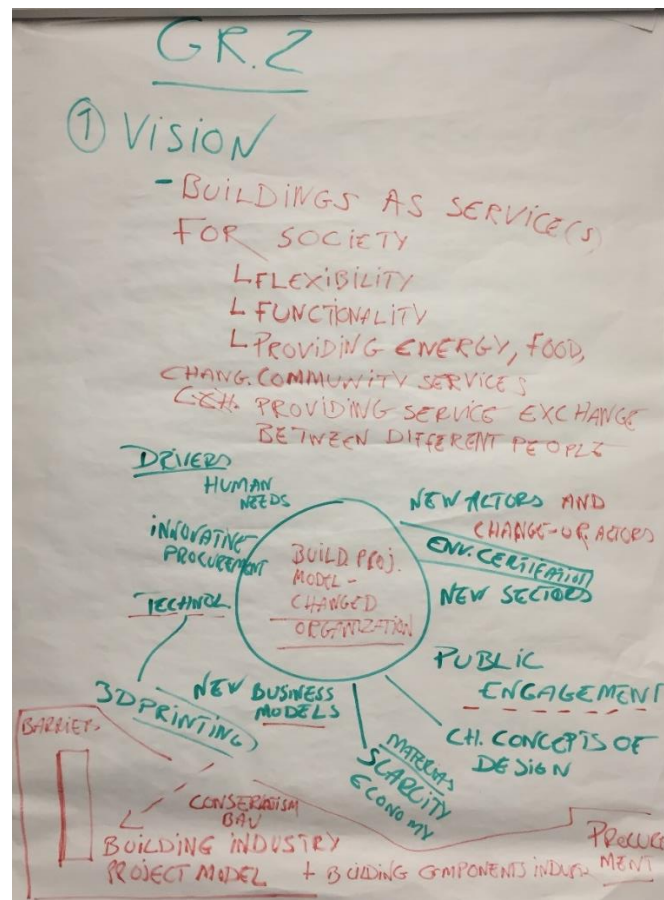 GR.2
① VISION
- BUILDINGS AS SERVICE(S)
FOR SOCIETY
FLEXIBILITY
FUNCTIONALITY
PROVIDING ENERGY, FOOD,
CHANG. COMMUNITY SERVICES
PROVIDING SERVICE EXCHANGE
BETWEEN DIFFERENT PEOPLE
DRIVERS
HUMAN
NEEDS
INNOVATIVE
PROCUREMENT
TECHNOL
3D PRINTING
NEW BUSINESS
MODELS
BUILD. PROJ.
MODEL -
CHANGED
ORGANIZATION
NEW ACTORS AND
CHANGE-OR ACTORS
ENV. CERTIFICATION
NEW SECTORS
PUBLIC
ENGAGEMENT
CH. CONCEPTS OF
DESIGN
MATERIAS
SCARCITY
ECONOMY
BARRIERS
CONSERVATISM
BAU
BUILDING INDUSTRY
PROJECT MODEL + BUILDING COMPONENTS
PROCURE
MENT